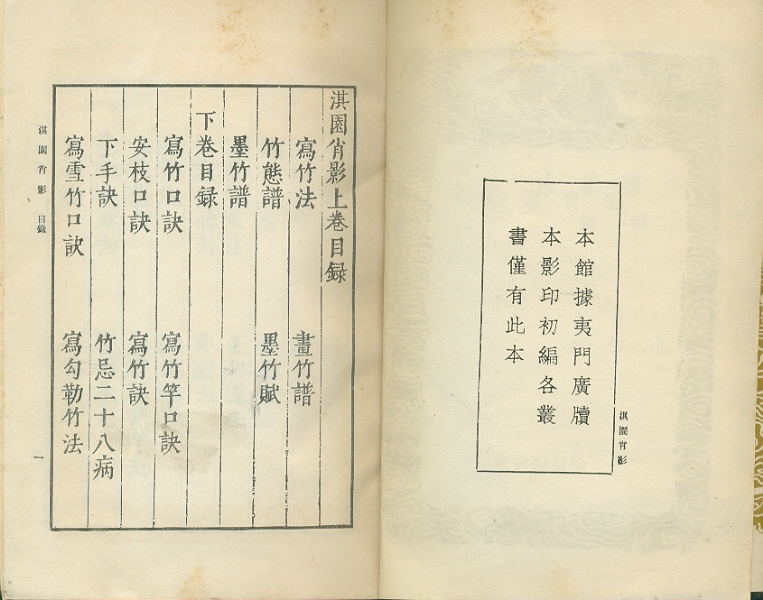 本館據夷門廣牘
本影印初編各叢
書僅有此本
淇園肖影
淇園肖影上卷目録
寫竹法 畫竹譜
竹態譜 墨竹賦
墨竹譜
下卷目録
寫竹口訣 寫竹竿口訣
安枝口訣 寫竹訣
下手訣 竹忌二十八病
寫雪竹口訣 寫勾勒竹法
淇園肖影 目錄
一